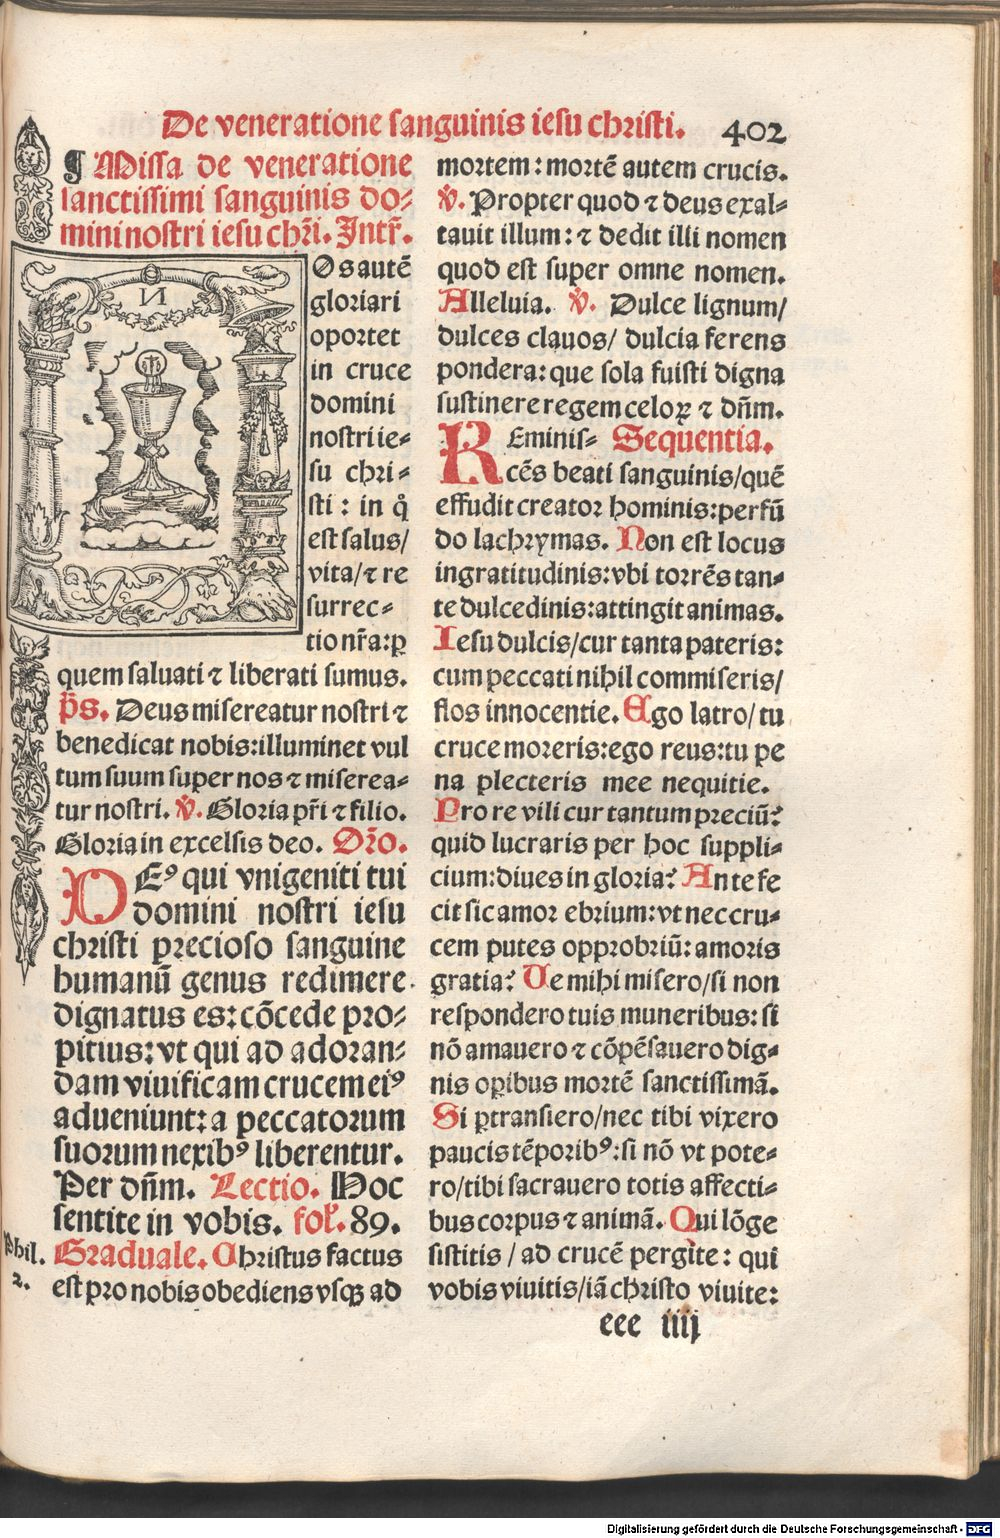 De veneratione sanguinis iesu christi. 402
¶ Missa de veneratione
sanctissimi sanguinis do⸗
mini nostri iesu chr̃i. Intr̃.
N
Os autē
gloriari
oportet
in cruce
domini
nostri ie⸗
su chri⸗
sti : in q̇
est salus/
vita/ ⁊ re
surrec⸗
tio nr̃a: ꝑ
quem saluati ⁊ liberati sumus.
p̃s. Deus misereatur nostri ⁊
benedicat nobis: illuminet vul
tum suum super nos ⁊ miserea⸗
tur nostri. v̇. Gloria pr̃i ⁊ filio.
Gloria in excelsis deo. Or̃o.
DEꝰ qui vnigeniti tui
domini nostri iesu
christi precioso sanguine
humanū genus redimere
dignatus es: cōcede pro⸗
pitius: vt qui ad adoran⸗
dam viuificam crucem eiꝰ
adueniunt: a peccatorum
suorum nexibꝰ liberentur.
Per dn̄m. Lectio. Hoc
sentite in vobis. fol. 89.
Phil. 2.
Graduale. Christus factus
est pro nobis obediens vsqꝫ ad
mortem : mortē autem crucis.
v̇. Propter quod ⁊ deus exal⸗
tauit illum: ⁊ dedit illi nomen
quod est super omne nomen.
Alleluia. v̇. Dulce lignum/
dulces clauos/ dulcia ferens
pondera: que sola fuisti digna
sustinere regem celoꝝ ⁊ dn̄m.
REminis⸗ Sequentia.
cēs beati sanguinis/ quē
effudit creator hominis: perfū
do lachrymas. Non est locus
ingratitudinis: vbi torrēs tan⸗
te dulcedinis: attingit animas.
Iesu dulcis/ cur tanta pateris:
cum peccati nihil commiseris/
flos innocentie. Ego latro/ tu
cruce moreris: ego reus: tu pe
na plecteris mee nequitie.
Pro re vili cur tantum preciū?
quid lucraris per hoc suppli⸗
cium: diues in gloria? An te fe
cit sic amor ebrium: vt nec cru⸗
cem putes opprobriū: amoris
gratia? Ve mihi misero/ si non
respondero tuis muneribus: si
nō amauero ⁊ cōpēsauero dig⸗
nis oꝑibus mortē sanctissimā.
Si ꝑtransiero/ nec tibi vixero
paucis tēporibꝰ: si nō vt pote⸗
ro/ tibi sacrauero totis affecti⸗
bus corpus ⁊ animā. Qui lōge
sistitis / ad crucē pergite : qui
vobis viuitis/ iā christo viuite:
eee iiij
Digitalisierung gefördert durch die Deutsche Forschungsgemeinschaft - DFG